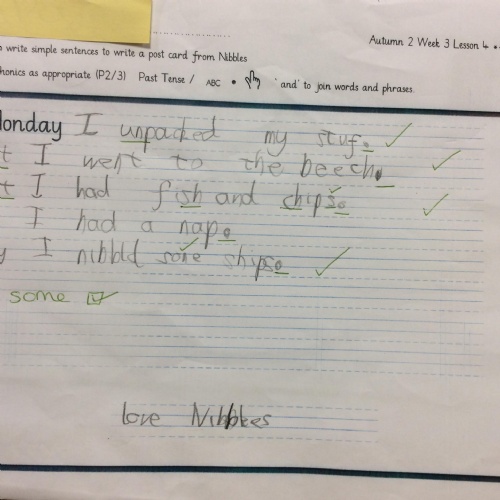 Autumn 2 Week 3 Lesson 4
o write simple sentences to write a post card from Nibbles
honics as appropriate (P2/3) Past Tense / ABC 'and' to join words and phrases.
Monday I unpacked my stuf.
t I went to the beech.
t I had fish and chips.
I had a nap.
y I nibbld some ships.
some
love Nibbles